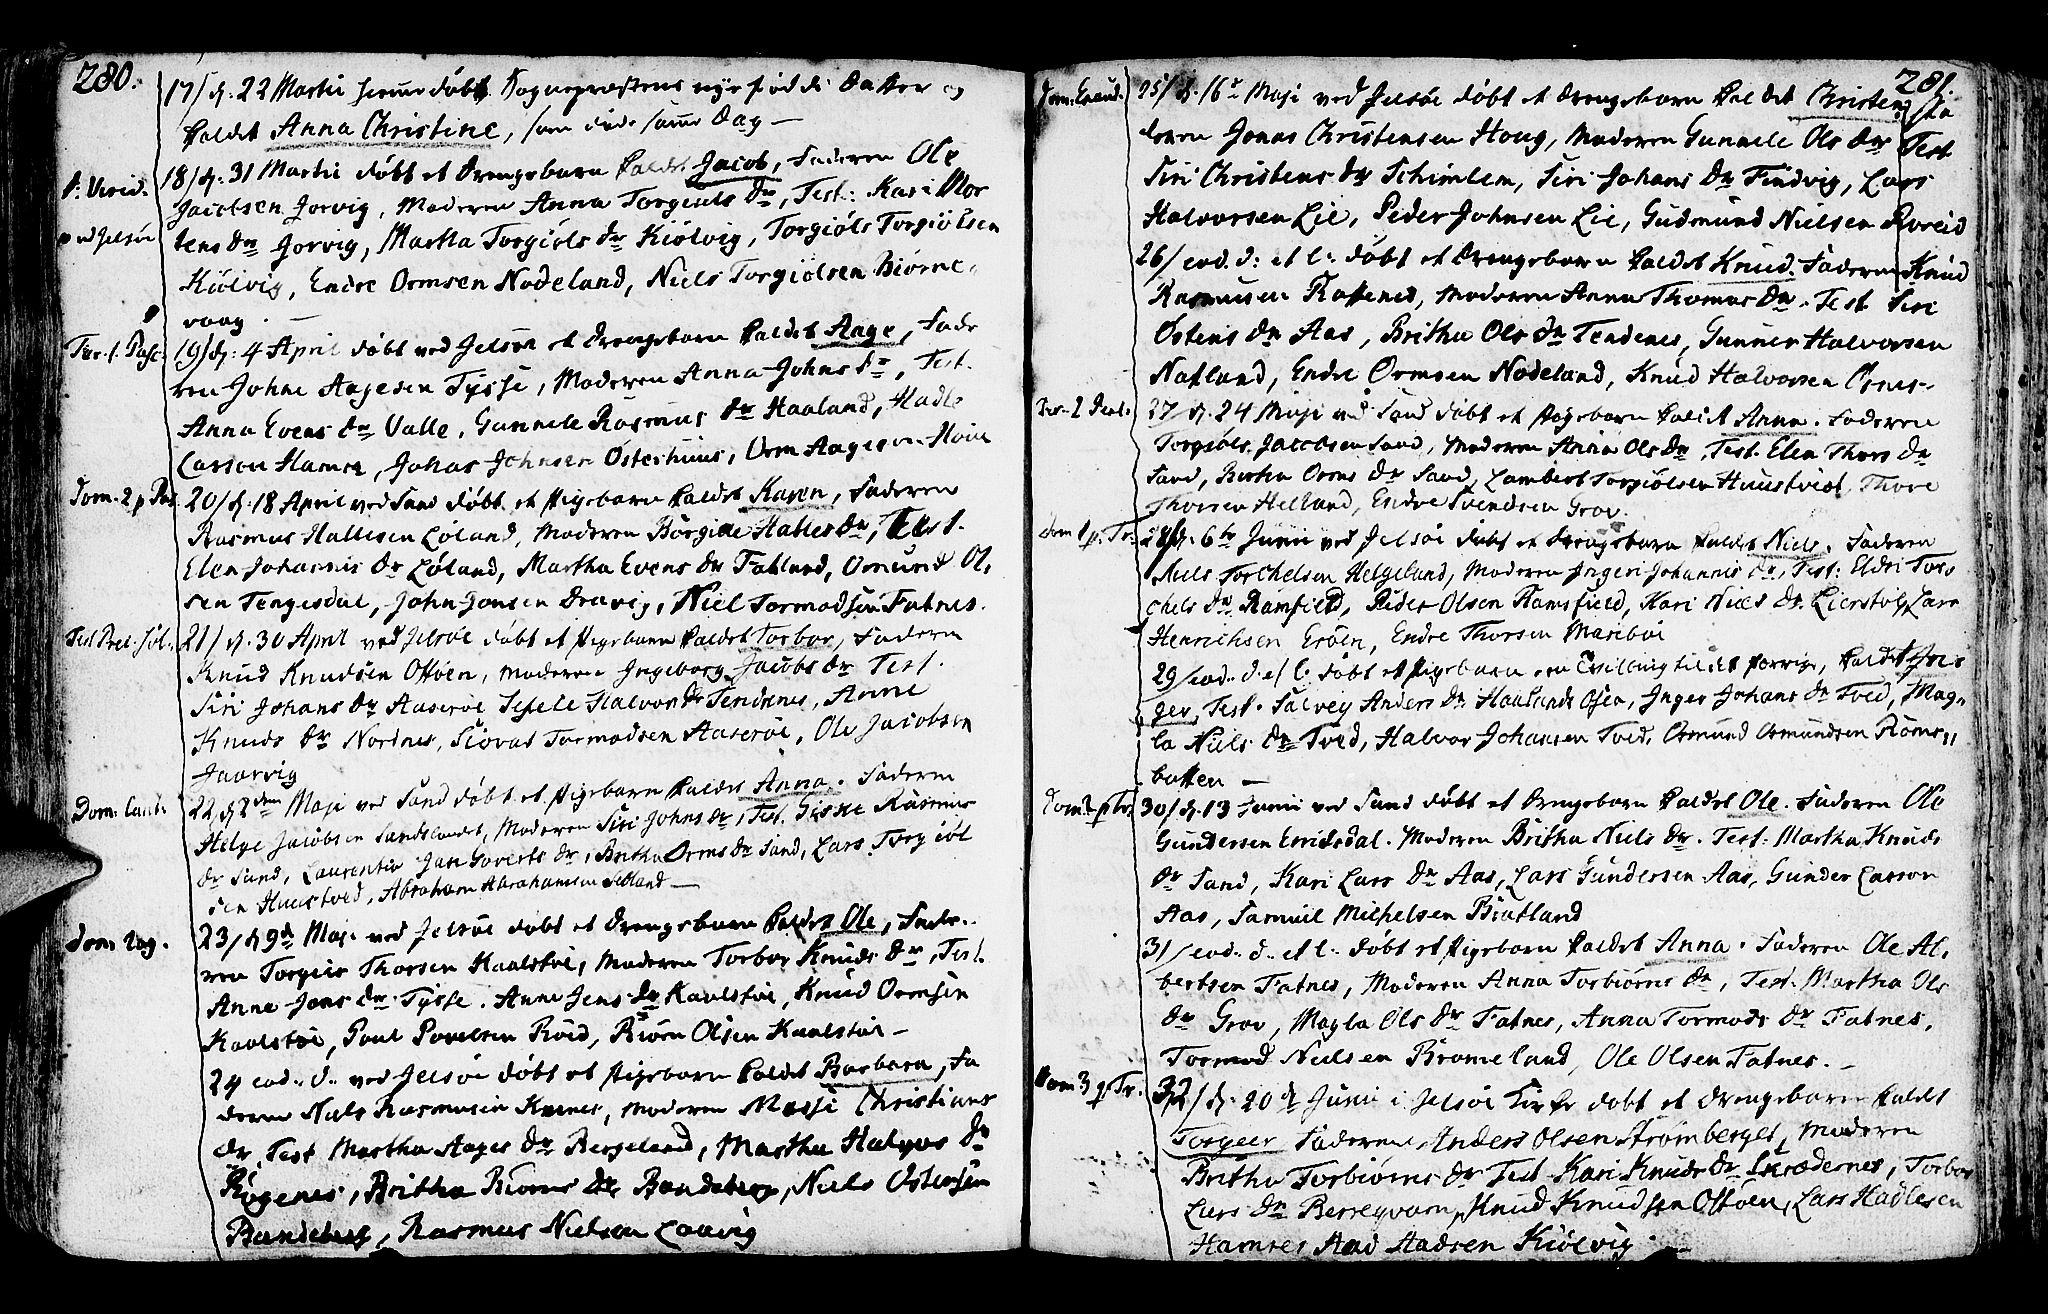 280.
17/ d: 22 Martii hiemmedøbt Sognepræstens nyefødde Datter og
kaldet Anna Christine, som døde samme Dag —
18/ d: 31 Martii døbt et Drengebarn kaldet Jacob, Faderen Ole
D: Virid.
ved Jelsøe
Jacobsen Jorvig, Moderen Anna Torgiuls Dr, Test: Kari Mor
tens Dr Jorvig, Martha Torgiøls Dr Kiølvig, Torgiøls Torgiølsen
Kiølvig, Endre Ormsen Nodeland, Niels Torgiølsen Biørne-
vaag.
Fer. 1. Pasc.
19/ d: 4 April døbt ved Jelsøe et Drengebarn kaldet Aage, Fade
ren Johne Aagesen Tysse, Moderen Anna Johns Dr, Test.
Anna Evens Dr Valle, Gunnele Rasmus Dr Haaland, Hadle
Larson Hamre, Johas Johnsen Østerhuus, Orm Aagesen Hoie
Dom. 2 p Pas.
20/ d: 18 April ved Sand døbt et Pigebarn kaldet Karen, Faderen
Rasmus Hallesen Løland, Moderen Børgille Halles Dr, Test.
Elen Johannis Dr Løland, Martha Evens Dr Fatland, Omund Ol-
sen Tengesdal, John Jonsen Dravig, Niel Tormodsen Fatnes.
Fest Prec. Sol.
21/ d: 30 April ved Jelsøe døbt et Pigebarn kaldet Torbor, Faderen
Knud Knudsen Offøen, Moderen Ingeborg Jacobs Dr Test.
Siri Johans Dr Aaserøe Sexele Halvors Dr Tendenes, Anne
Knuds Dr Nordnes, Siovat Tormodsen Aaserøe, Ole Jacobsen
Jaarvig
Dom: Cant.
22/ d 2den Maji ved Sand døbt et Pigebarn kaldet Anna. Faderen
Helge Jacobsen Sandslandet, Moderen Siri Johns Dr, Test. Giske Rasmus
Dr Sand, Laurentia Jan Goverts Dr, Britha Orms Dr Sand, Lars Torgiøl
sen Huustved, Abraham Abrahamsen Sedland —
Dom: Rog.
23/ d 9d Maji ved Jelsøe døbt et Drengebarn kaldet Ole, Fade-
ren Torgeir Thorsen Kaalstøe, Moderen Torbor Knuds Dr, Test.
Anne Jens Dr Tysse. Anne Jens Dr Kaalstøe, Knud Ormsen
Kaalstøe, Poul Povelsen Roed, Biørn Olsen Kaalstøe —
24 eod. d. ved Jelsøe døbt et Pigebarn kaldet Barbara, Fa
deren Niels Rasmusen Knenes, Moderen Massi Christians
Dr, Test Martha Aages Dr Bergeland, Martha Halvors Dr
Røgenes, Britha Biørns Dr Bandeberg, Niels Østensen
Bandeberg, Rasmus Nielsen Laavig
281.
Dom: Exaud.
25/ d. 16de Maji ved Jelsøe døbt et Drengebarn kaldet Christen, Fa
deren Jonas Christensen Houg, Moderen Gunnele Ols Dr Test
Siri Christens Dr Schimlem, Siri Johans Dr Findvig, Lars
Halvorsen Lie, Peder Johnsen Lie, Gudmund Nielsen Røreid
26/ eod. d: et l: døbt et Drengebarn kaldet Knud. Faderen Knud
Rasmusen Foffenes, Moderen Anna Thomas Dr. Test Siri
Østens Dr Aas, Britha Ols Dr Tendenes, Gunner Halvorsen
Natland, Endre Ormsen Nodeland, Knud Halvorsen Ørnes.
Fer. 2 Pent.
27/ d. 24 Maji ved Sand døbt et Pigebarn kaldet Anna. Faderen
Torgiøls Jacobsen Sand, Moderen Anna Ols Dr, Test. Elen Thors Dr
Sand, Bertha Orms Dr Sand, Lambert Torgiølsen Huustvedt, Thore
Thorsen Helland, Endre Svendsen Grov.
Dom 1 p. Tr.
28/ d. 6te Junii ved Jelsøe døbt et Drengebarn kaldet Niels. Faderen
Niels Torchelsen Helgeland, Moderen Ingeri Johannis Dr, Test: Eldri Tor-
chels Dr Ramsfield, Peder Olsen Ramsfield, Kari Niels Dr Lierstøl, Lars
Henrichsen Erøen, Endre Thorsen Maribøe
29/ eod. d. et l. døbt et Pigebarn en Tvilling til det forrige, kaldet In-
ger, Test. Salvey Anders Dr Haalands Osen, Inger Johans Dr Tved, Mag-
la Niels Dr Tved, Halvor Johansen Tved, Osmund Osmundsen Biørne-
batten —
Dom 2 p Tr.
30/ d. 13 Junii ved Sand døbt et Drengebarn kaldet Ole. Faderen Ole
Gundersen Erridsdal. Moderen Britha Niels Dr. Test. Martha Knuds
Dr Sand, Kari Lars Dr Aas, Lars Gundersen Aas, Gunder Larson
Aas, Samuel Michelsen Bratland
31/ eod. d. et l. døbt et Pigebarn kaldet Anna. Faderen Ole Al-
bertsen Fatnes, Moderen Anna Torbiørns Dr, Test. Martha Ols
Dr Grov, Magla Ols Dr Fatnes, Anna Tormods Dr Fatnes,
Tormod Nielsen Bromeland, Ole Olsen Fatnes. —
Dom 3 p. Tr.
32/ d. 20de Junii i Jelsøe Kirke døbt et Drengebarn kaldet
Torgeer Faderen Anders Olsen Strømberget, Moderen
Britha Torbiørns Dr Test Kari Knuds Dr Skrædernes, Torbor
Lars Dr Berreqvam, Knud Knudsen Offøen, Lars Hadlesen
Hamre, Aad Aadsen Kiølvig. —